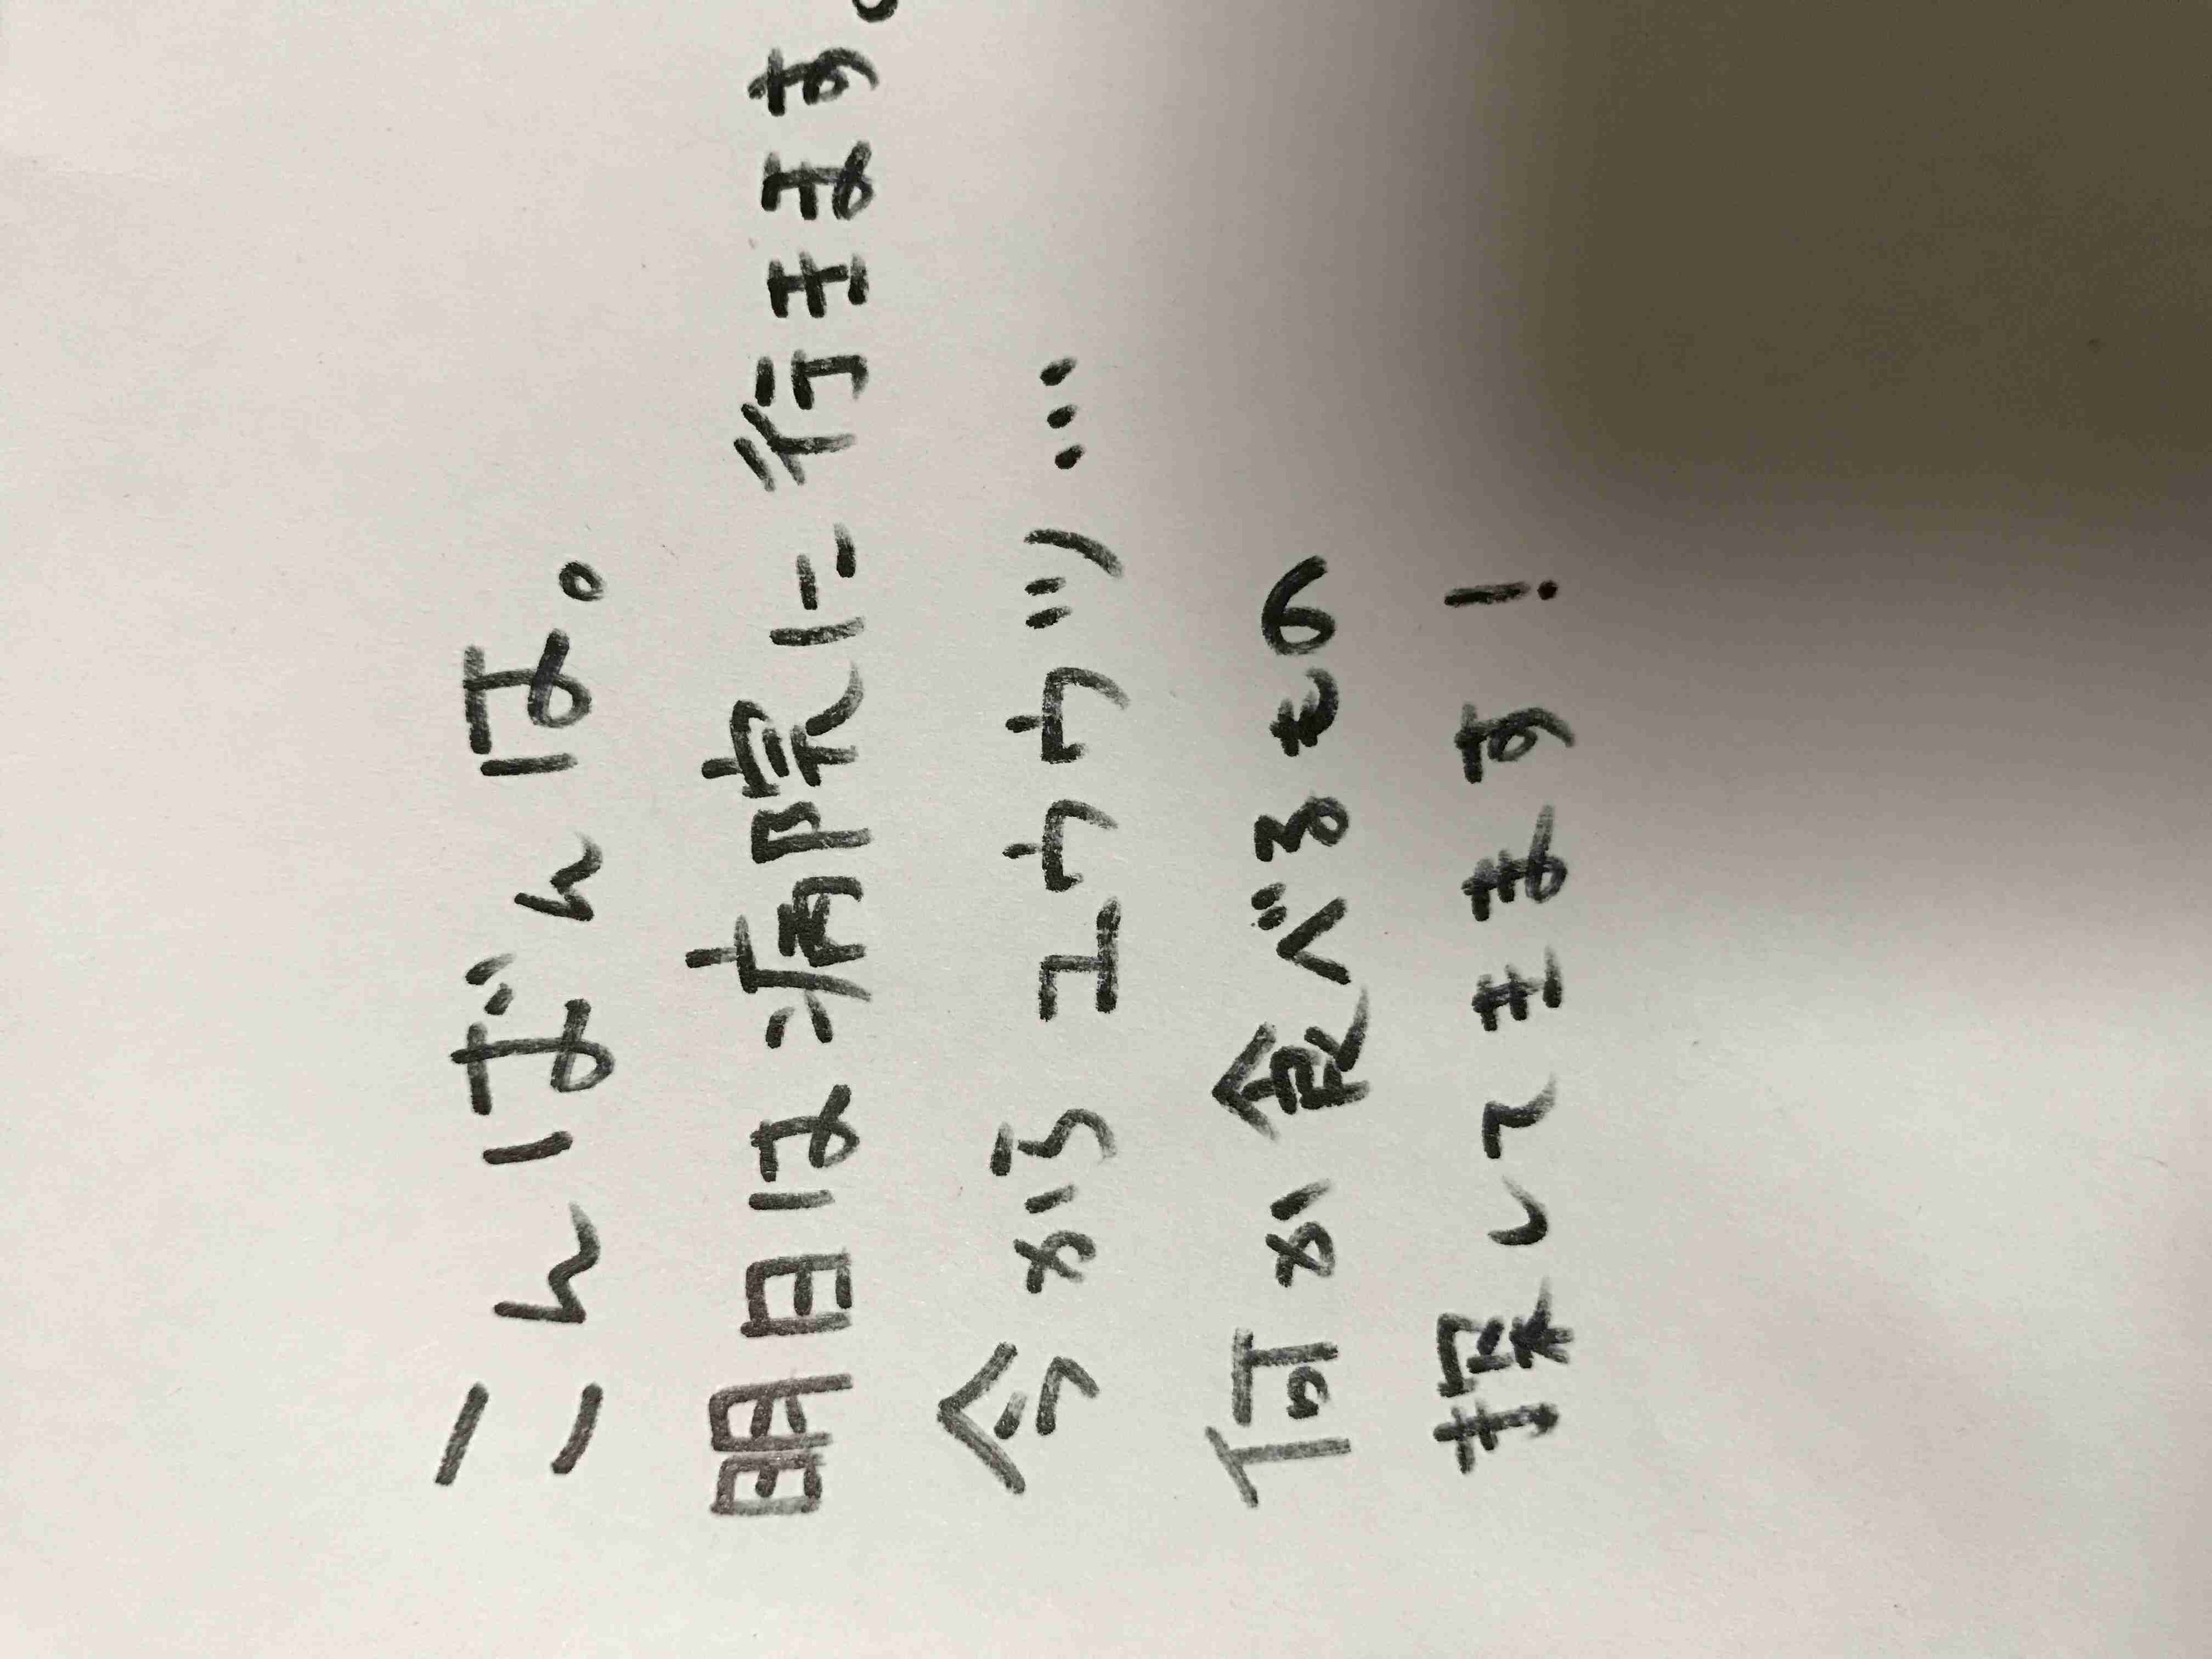 こんばんは。
明日は病院に行きます。
今から ユウウツ…
何か食べるもの
探してきます!